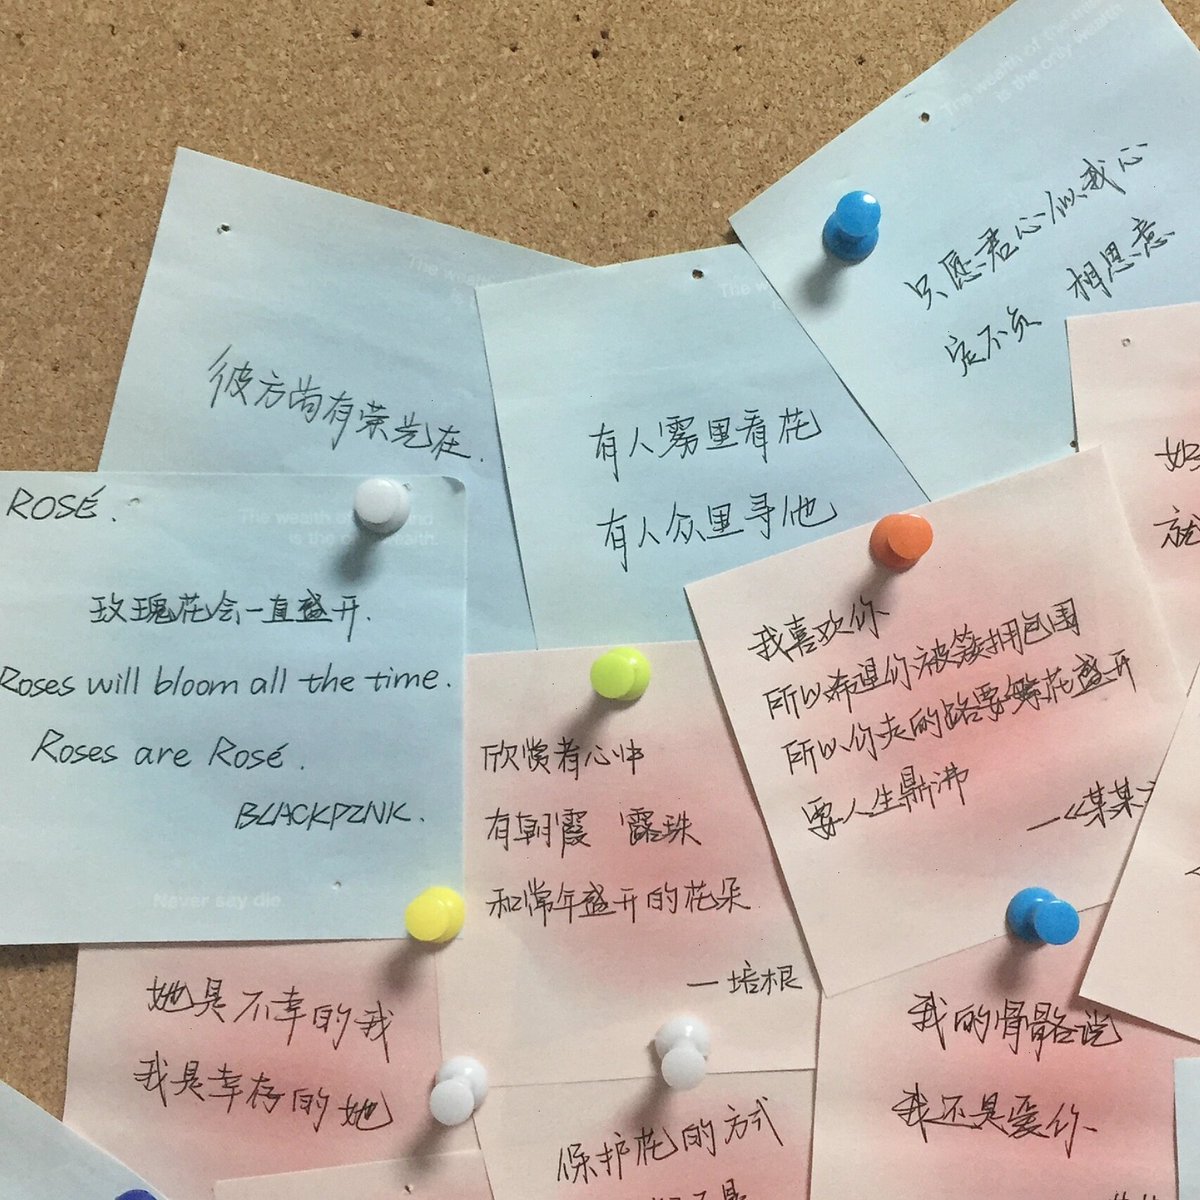 The wealth of the mind
is the only wealth
只愿君心似我心
定不负 相思意
彼方尚有荣光在.
The w
有人雾里看花
有人众里寻他
ROSÉ.
The wealth of the mind
is the only wealth
玫瑰花会一直盛开.
Roses will bloom all the time.
Roses are Rosé.
BLACKPINK.
Never say die
我喜欢你
所以希望你被簇拥包围
所以你走的路要繁花盛开
要人生鼎沸
—《某某
欣赏者心中
有朝霞 露珠
和常年盛开的花朵
—培根
她是不幸的我
我是幸存的她
我的骨骼说
我还是爱你
保护花的方式
就